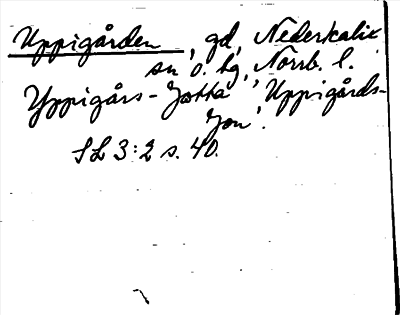 Uppigården, gd, Nederkalix
sn o. hg, Norrb. l.
Yppigårs-Jåtta 'Uppigårds-
Jon'.
SL 3:2 s. 40.